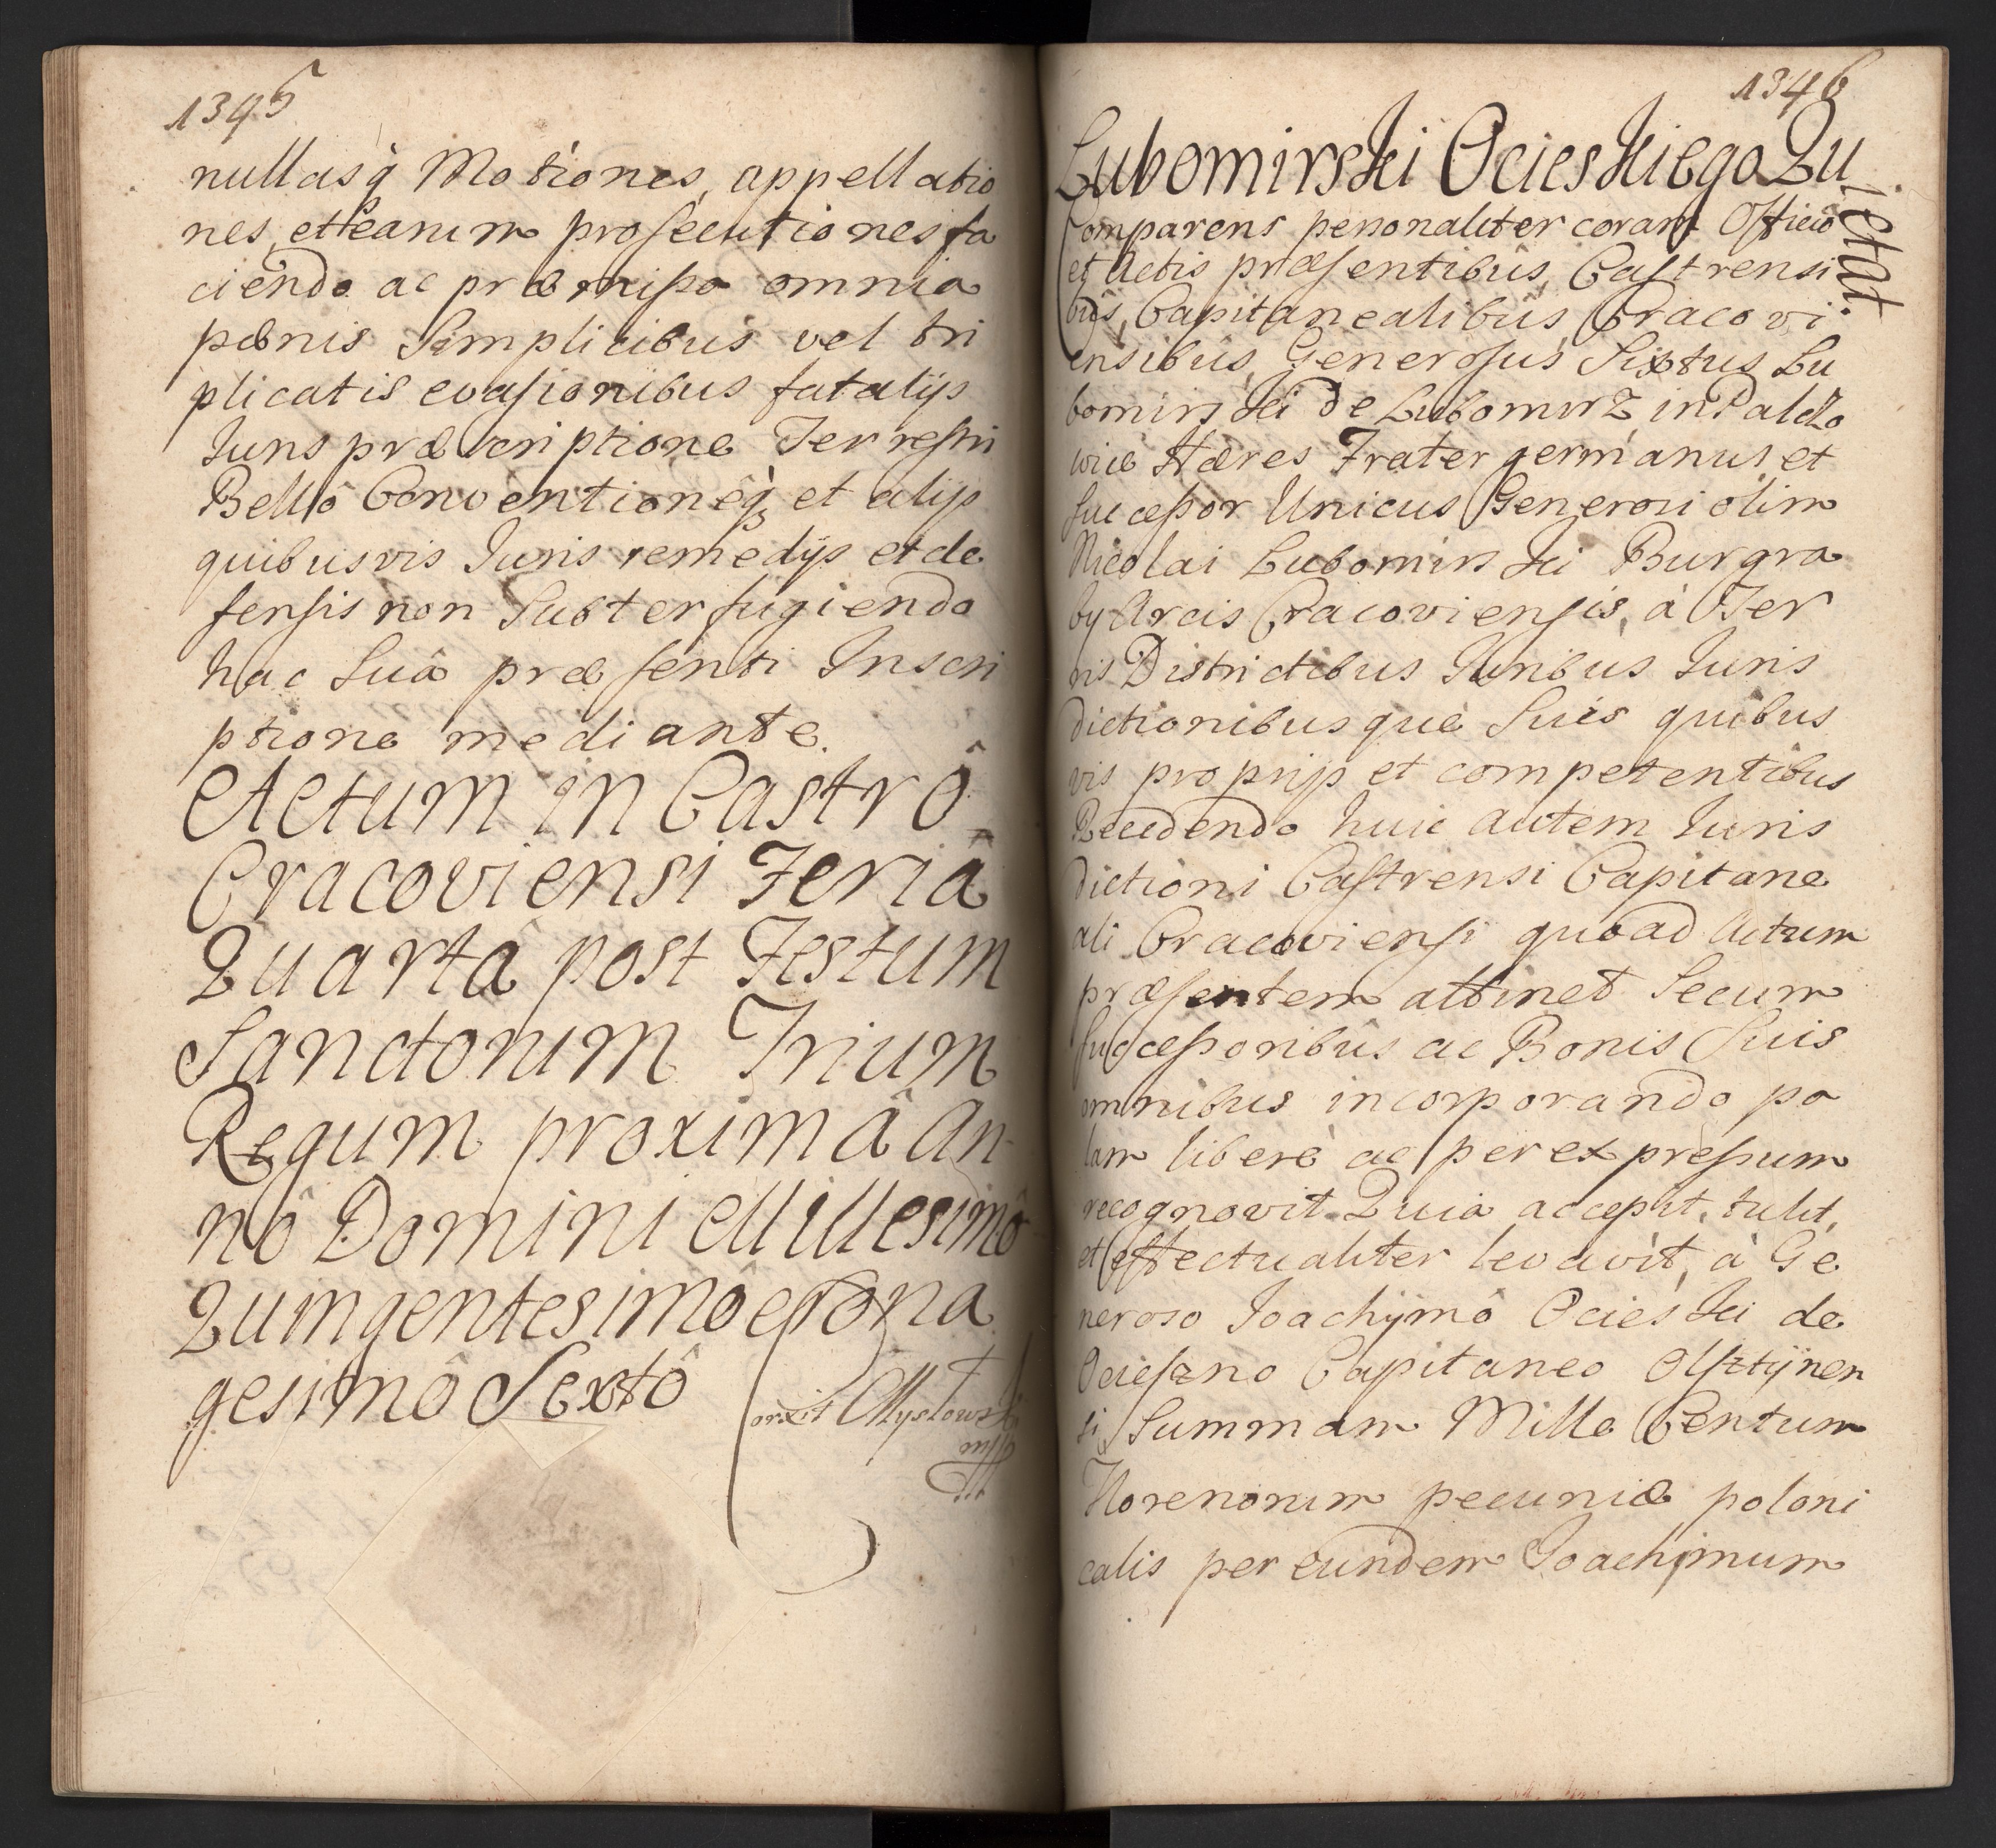 1345
nullasq̀ Motiones, appellatio
nes, et earum prosecutiones fa
ciendo ac præmissa omnia
pœnis Simplicibus vel tri
plicatis evasionibus fatalijs
Iuris præscriptione Terrestri
Bellô Conventioneq̀ et alijs
quibusvis Iuris remedijs et de
fensis non Subterfugiendo
hac Suâ præsenti Inscri
ptione mediante.
Actum in Castrô
Cracoviensi Feriâ
Quartâ post Festum
Sanctorum Trium
Regum proximâ An-
nô Domini Millesimô
Quingentesimô et Nona
gesimô Sextô
Correxit Mysłowski
mpp
1346
Lubomirski Ocieskiego Qu
ietat
Comparens personaliter coram Officio
et Actis præsentibus, Castrensi
bus, Capitanealibus Cracovi
ensibus, Generosus Sixtus Lu
bomirski de Lubomirz in Paldzo
wice Hæres Frater germanus et
Successor Unicus Generosi olim
Nicolai Lubomirski Burgra
by Arcis Cracoviensis, à Ter
ris Districtibus Iuribus Iuris
dictionibusque Suis quibus
vis proprijs et competentibus
Recedendo huic autem Iuris
dictioni Castrensi Capitane
ali Cracoviensi quoad Actum
præsentem attinet Secum
Successoribus ac Bonis Suis
omnibus incorporando pa
lam libere ac per expressum
recognovit. Quia accepit, tulit,
et effectualiter levavit, à Ge
neroso Joachymô Ocieski de
Ocieszno Capitaneo Olsztÿnen
si, Summam Mille Centum
Florenorum pecuniæ poloni
calis per eundem Joachimum